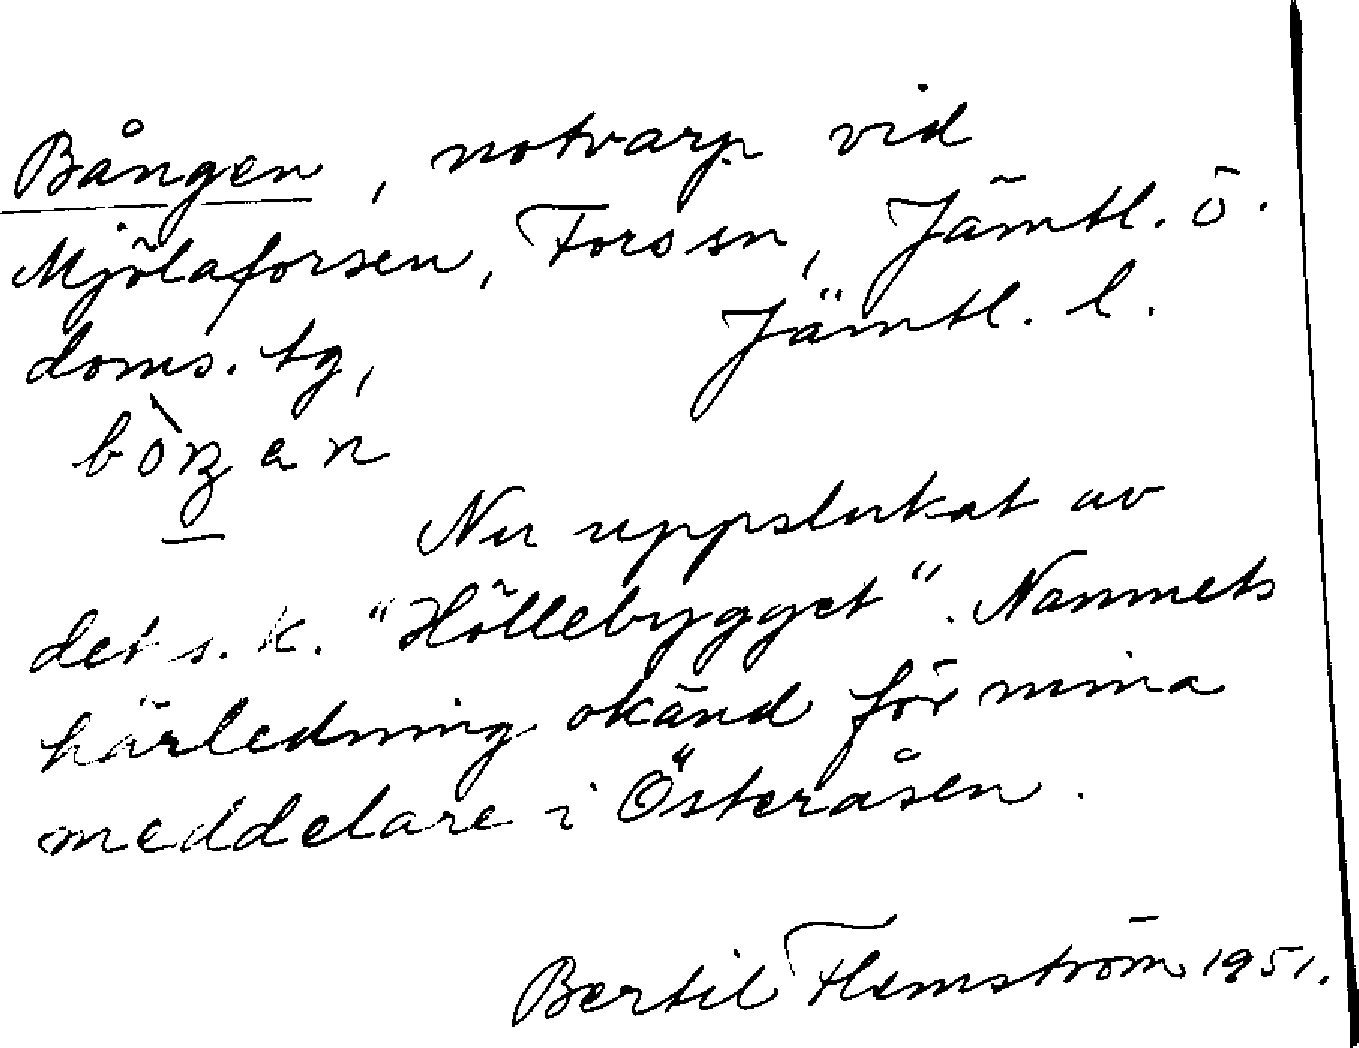 Bången, notvarp vid
Mjölaforsen, Fors sn, Jämtl. ö.
doms. tg, Jämtl. l.
bòŋan
Nu uppslukat av
det s.k. "Höllebygget". Namnets
härledning okänd för mina
meddelare i Österåsen.
Bertil Flemström 1951.